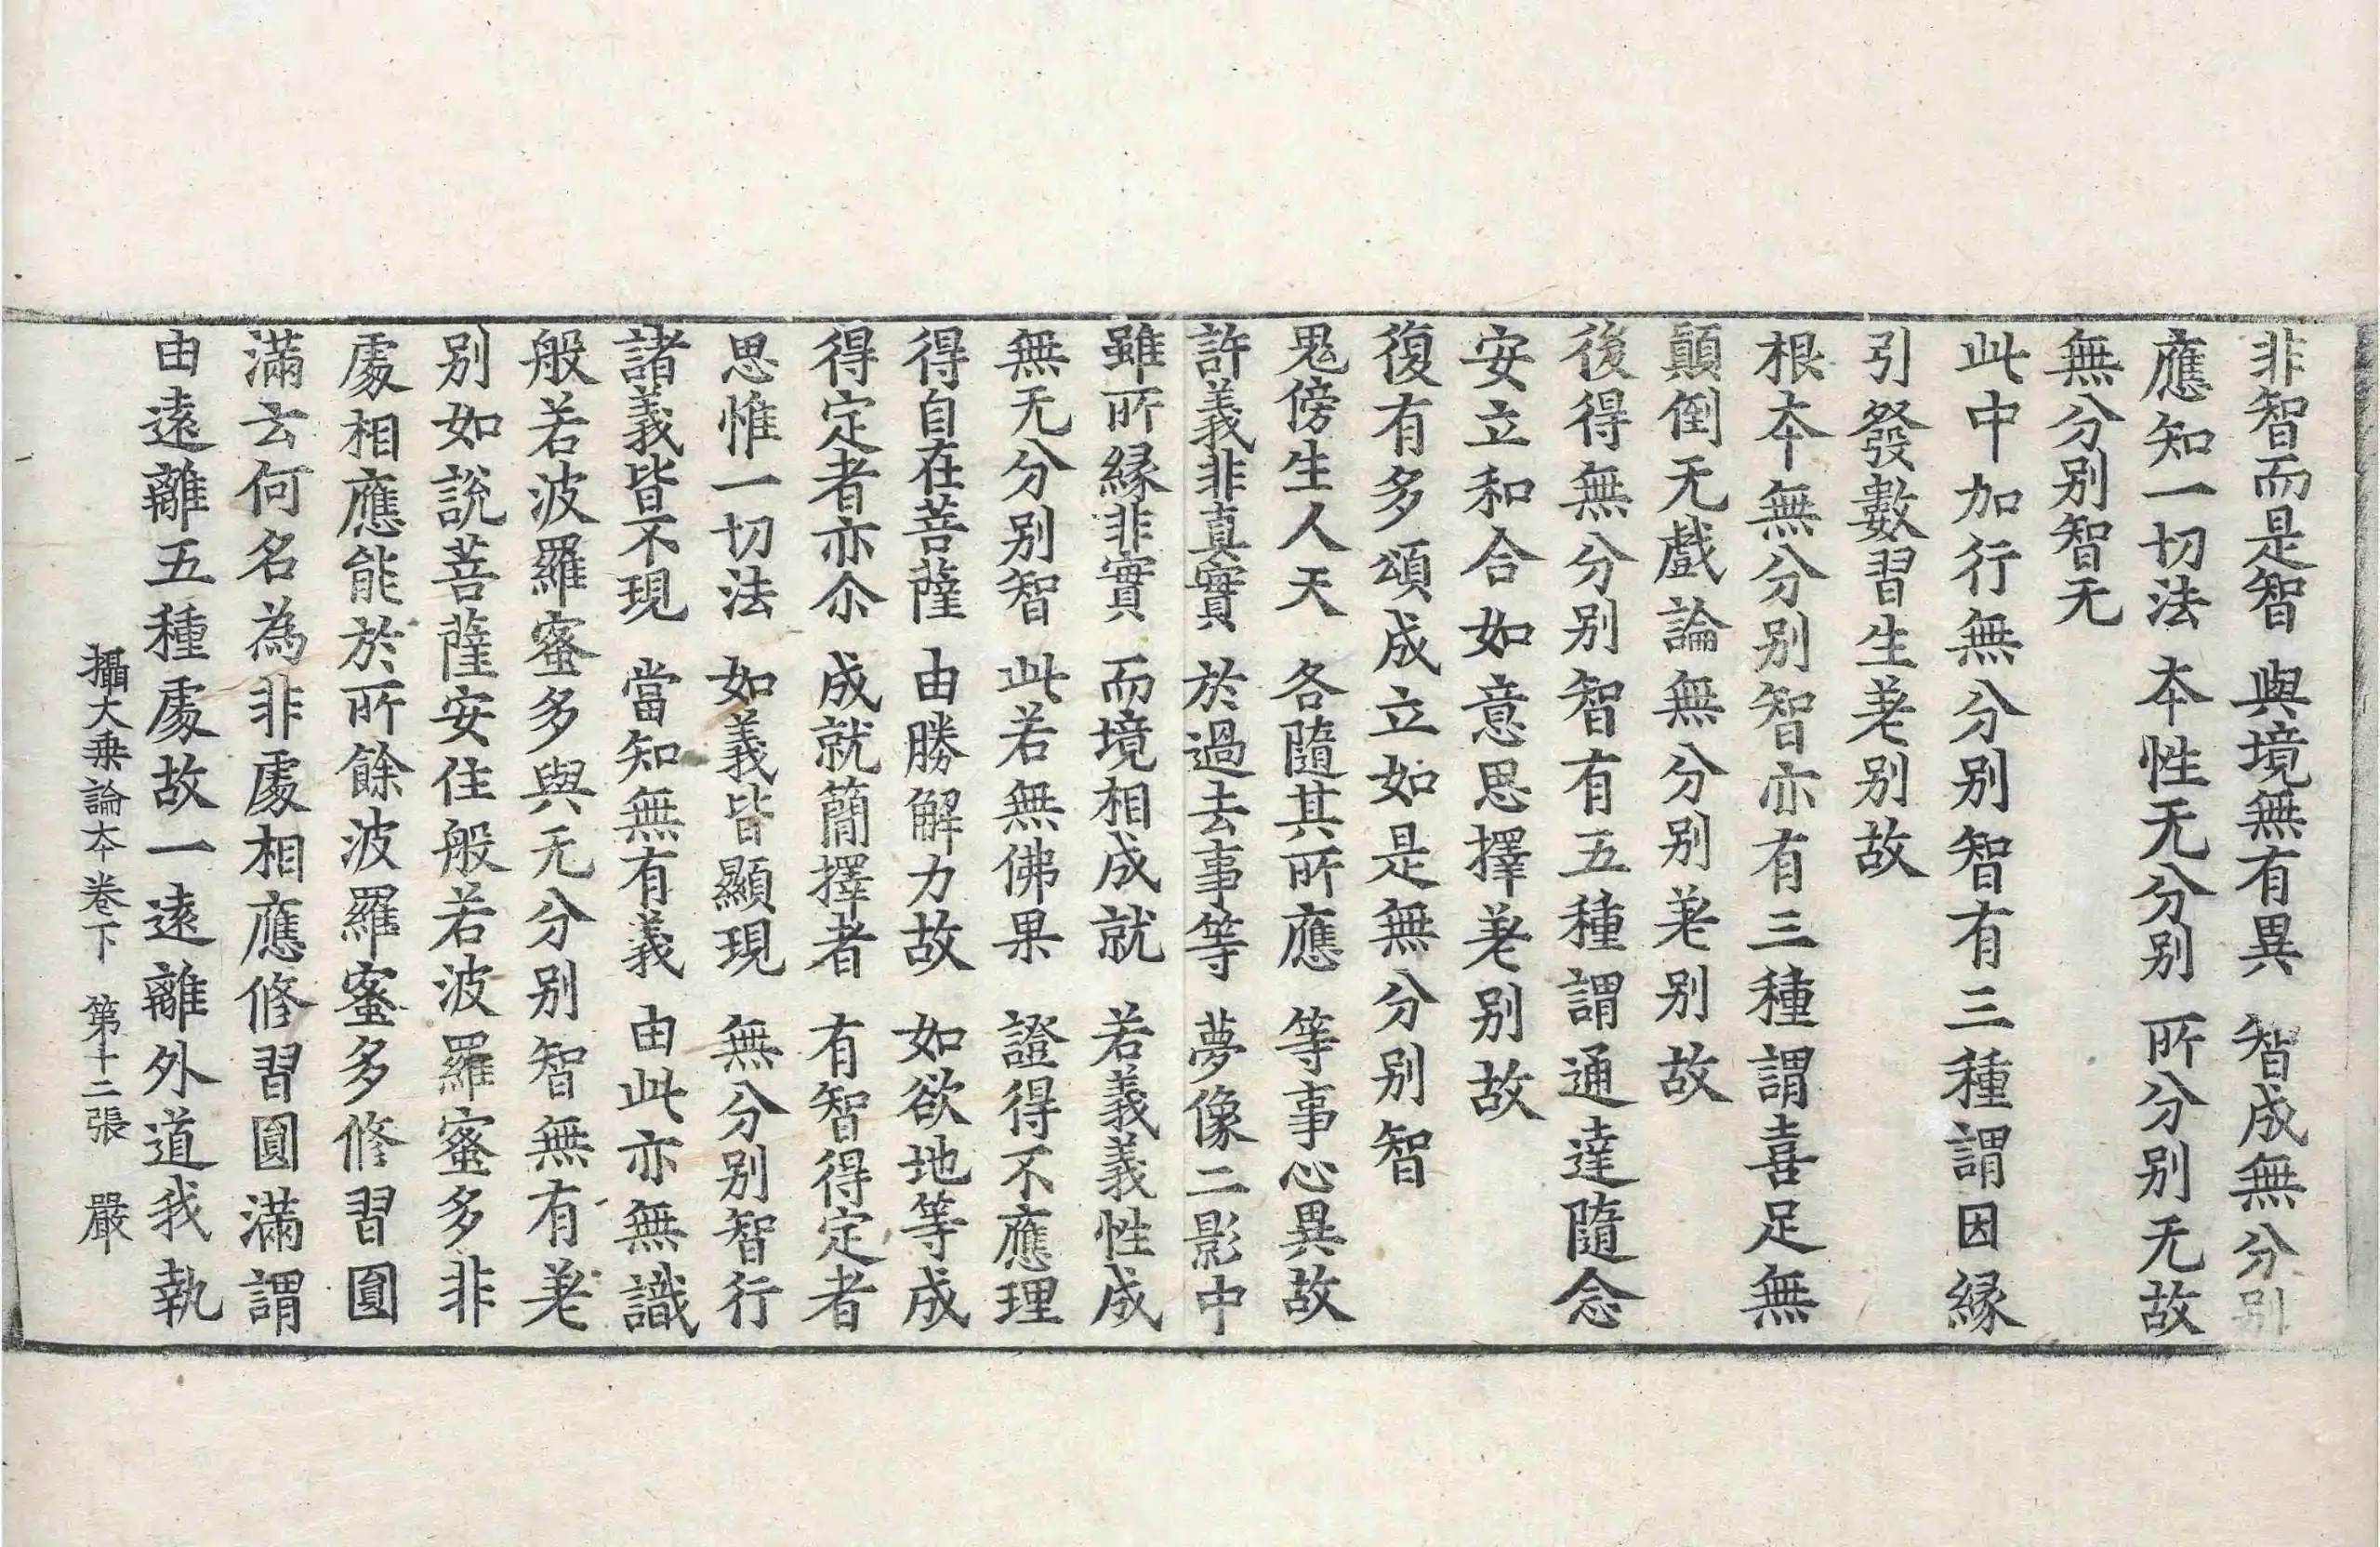 非智而是智　與境無有異　智成無分别
應知一切法　本性无分别　所分别无故
無分别智无
此中加行無分别智有三種謂因緣
引發數習生差别故
根本無分别智亦有三種謂喜足無
顛倒无戲論無分别差别故
後得無分别智有五種謂通達隨念
安立和合如意思擇差别故
復有多頌成立如是無分别智
鬼傍生人天　各隨其所應　等事心異故
許義非真實　於過去事等　夢像二影中
雖所緣非實　而境相成就　若義義性成
無无分别智　此若無佛果　證得不應理
得自在菩薩　由勝解力故　如欲地等成
得定者亦尒　成就簡擇者　有智得定者
思惟一切法　如義皆顯現　無分别智行
諸義皆不現　當知無有義　由此亦無識
般若波羅蜜多與无分别智無有差
别如說菩薩安住般若波羅蜜多非
處相應能於所餘波羅蜜多修習圓
滿云何名為非處相應修習圓滿謂
由遠離五種處故一遠離外道我執
攝大乘論本卷下　第十二張　嚴